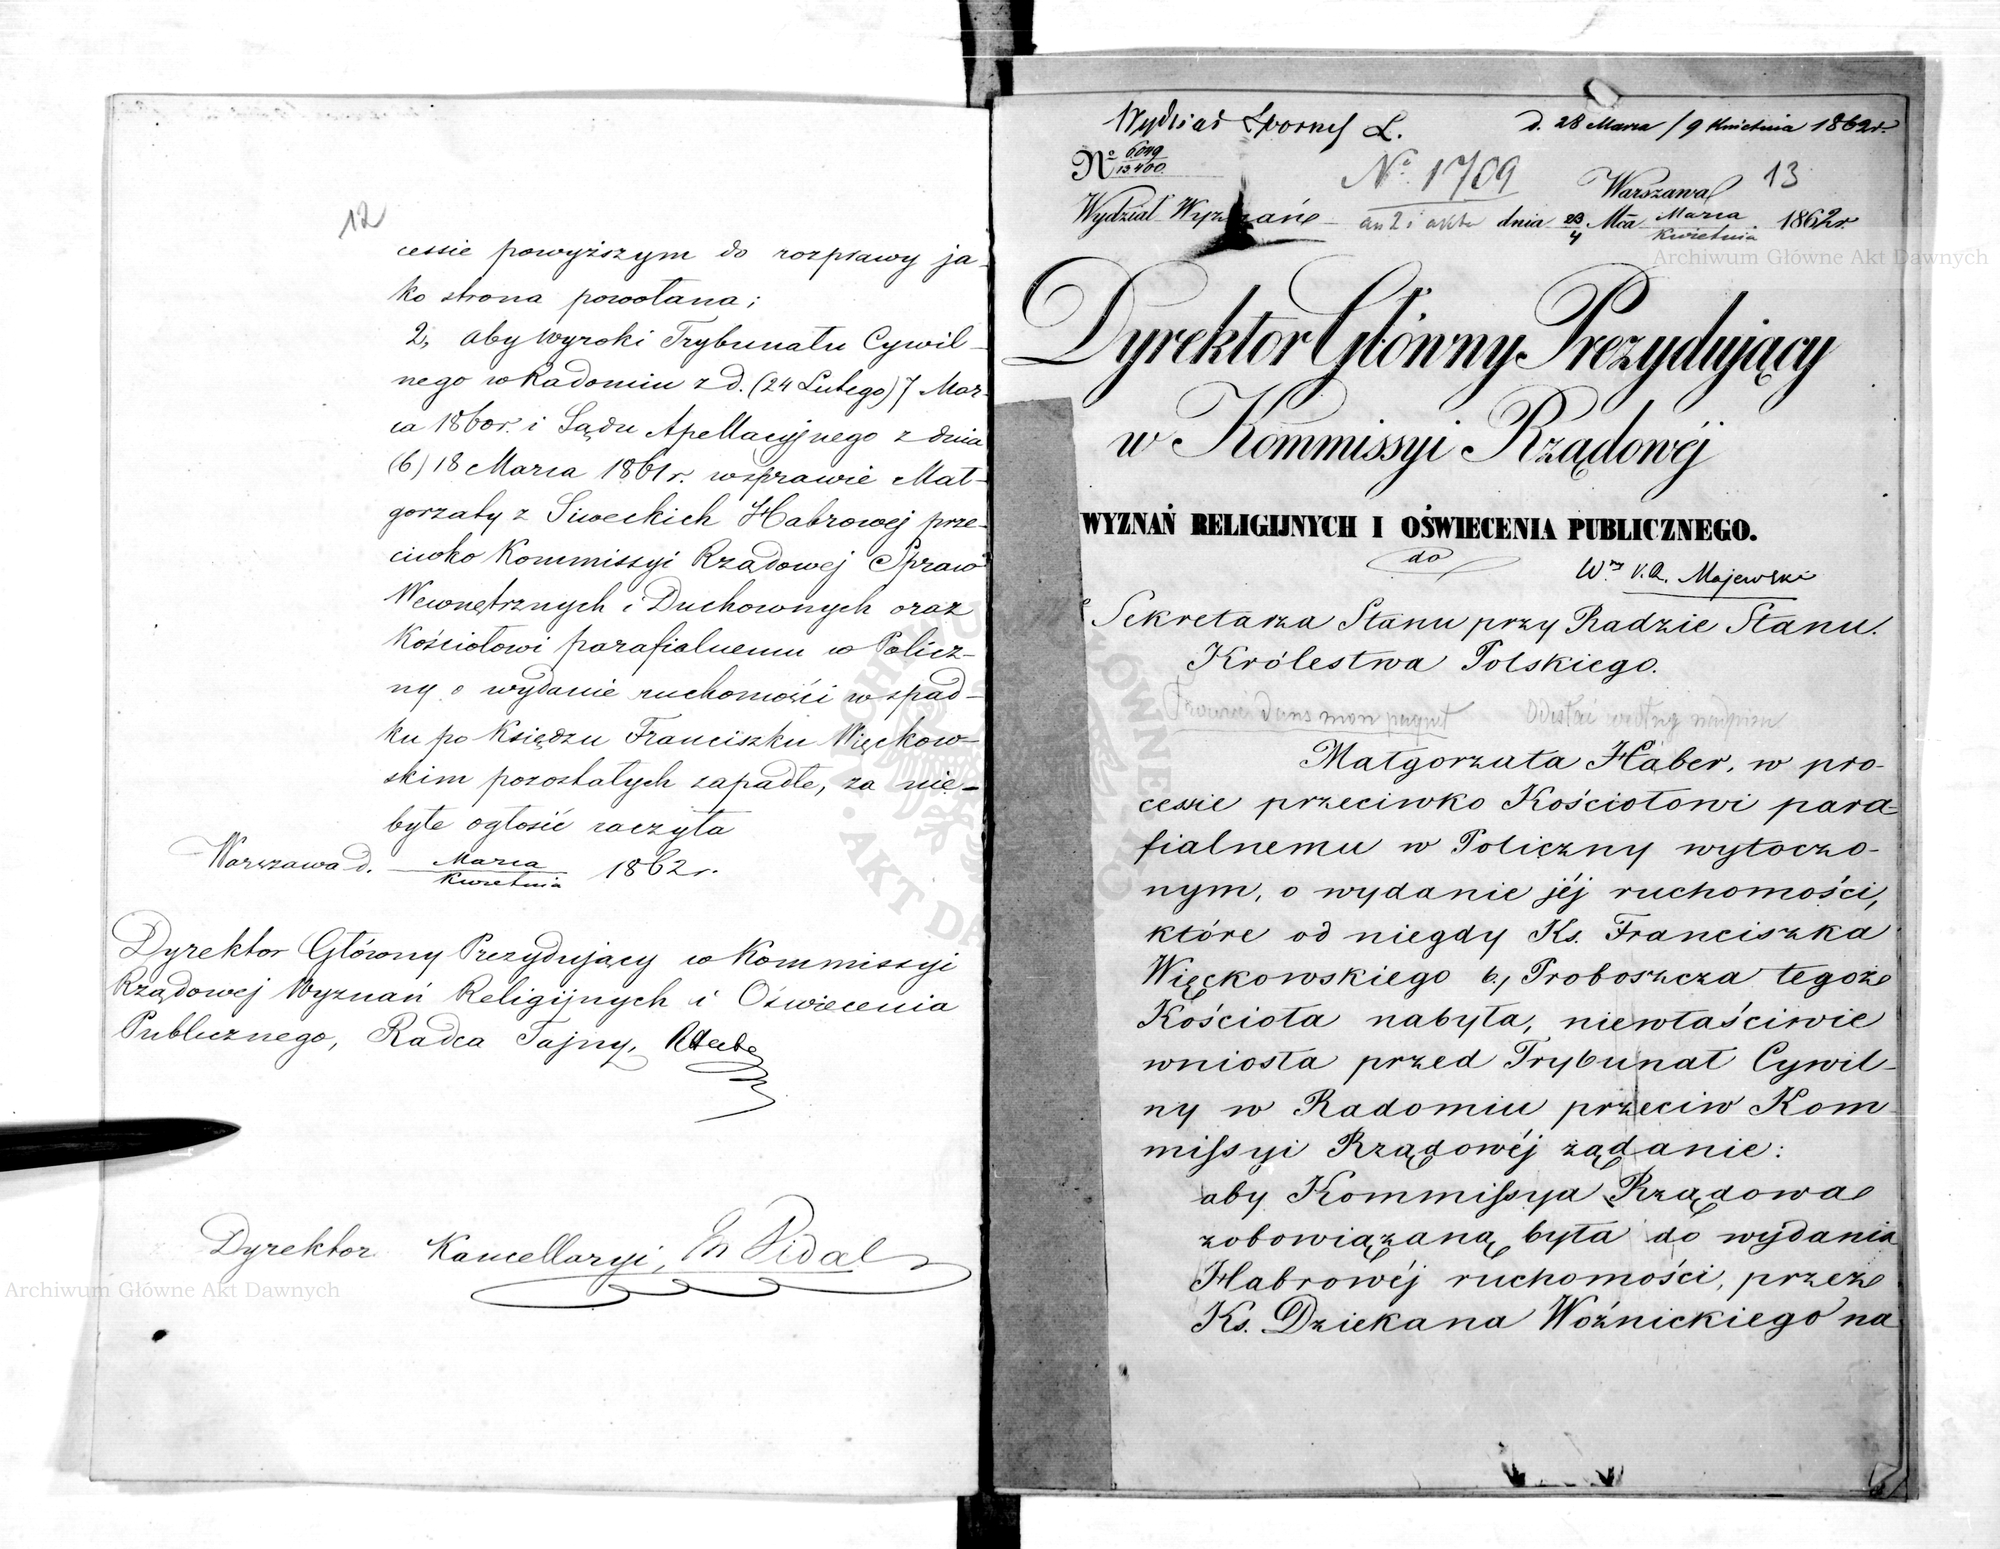 12
cessie powyższym do rozprawy ja-
ko strona powołana;
2, aby Wyroki Trybunału Cywil-
nego w Radomiu z d. (24 Lutego) 7 Mar-
ca 1860 r. i Sądu Apellacyjnego z dnia
(6) 18 Marca 1861 r. w sprawie Mał-
gorzaty z Siweckich Habrowej prze-
ciwko Kommissyi Rządowej Spraw
Wewnętrznych i Duchownych oraz
Kościołowi parafialnemu w Policz-
ny o wydanie ruchomości w spad-
ku po Księdzu Franciszku Więckow-
skim pozostałych zapadłe, za nie-
byłe ogłosić raczyła
Warszawa d. Marca/Kwietnia 1862 r.
Dyrektor Główny Prezydujący w Kommissyi
Rządowej Wyznań Religijnych i Oświecenia
Publicznego, Radca Tajny,
Dyrektor Kancellaryi,
Archiwum Główne Akt Dawnych
Wydział Sporny L. d. 28 Marca / 9 Kwietnia 1862 r.
No 6049/13400
No. 1709 Warszawa 13
Wydział Wyznań dnia 23/4 Mca Marca/Kwietnia 1862 r.
Archiwum Główne Akt Dawnych
Dyrektor Główny Prezydujący
w Kommissyi Rządowéj
WYZNAŃ RELIGIJNYCH I OŚWIECENIA PUBLICZNEGO.
do
Majewski
Sekretarza Stanu przy Radzie Stanu
Królestwa Polskiego.
Odesłać według nadpisu
Małgorzata Haber, w pro-
cessie przeciwko Kościołowi para-
fialnemu w Policzny wytoczo-
nym, o wydanie jéj ruchomości,
które od niegdy Ks. Franciszka
Więckowskiego b., Proboszcza tegoż
Kościoła nabyła, niewłaściwie
wniosła przed Trybunał Cywil-
ny w Radomiu przeciw Kom-
missyi Rządowéj żądanie:
aby Kommissya Rządowa
zobowiązaną była do wydania
Habrowéj ruchomości, przez
Ks. Dziekana Woźnickiego na